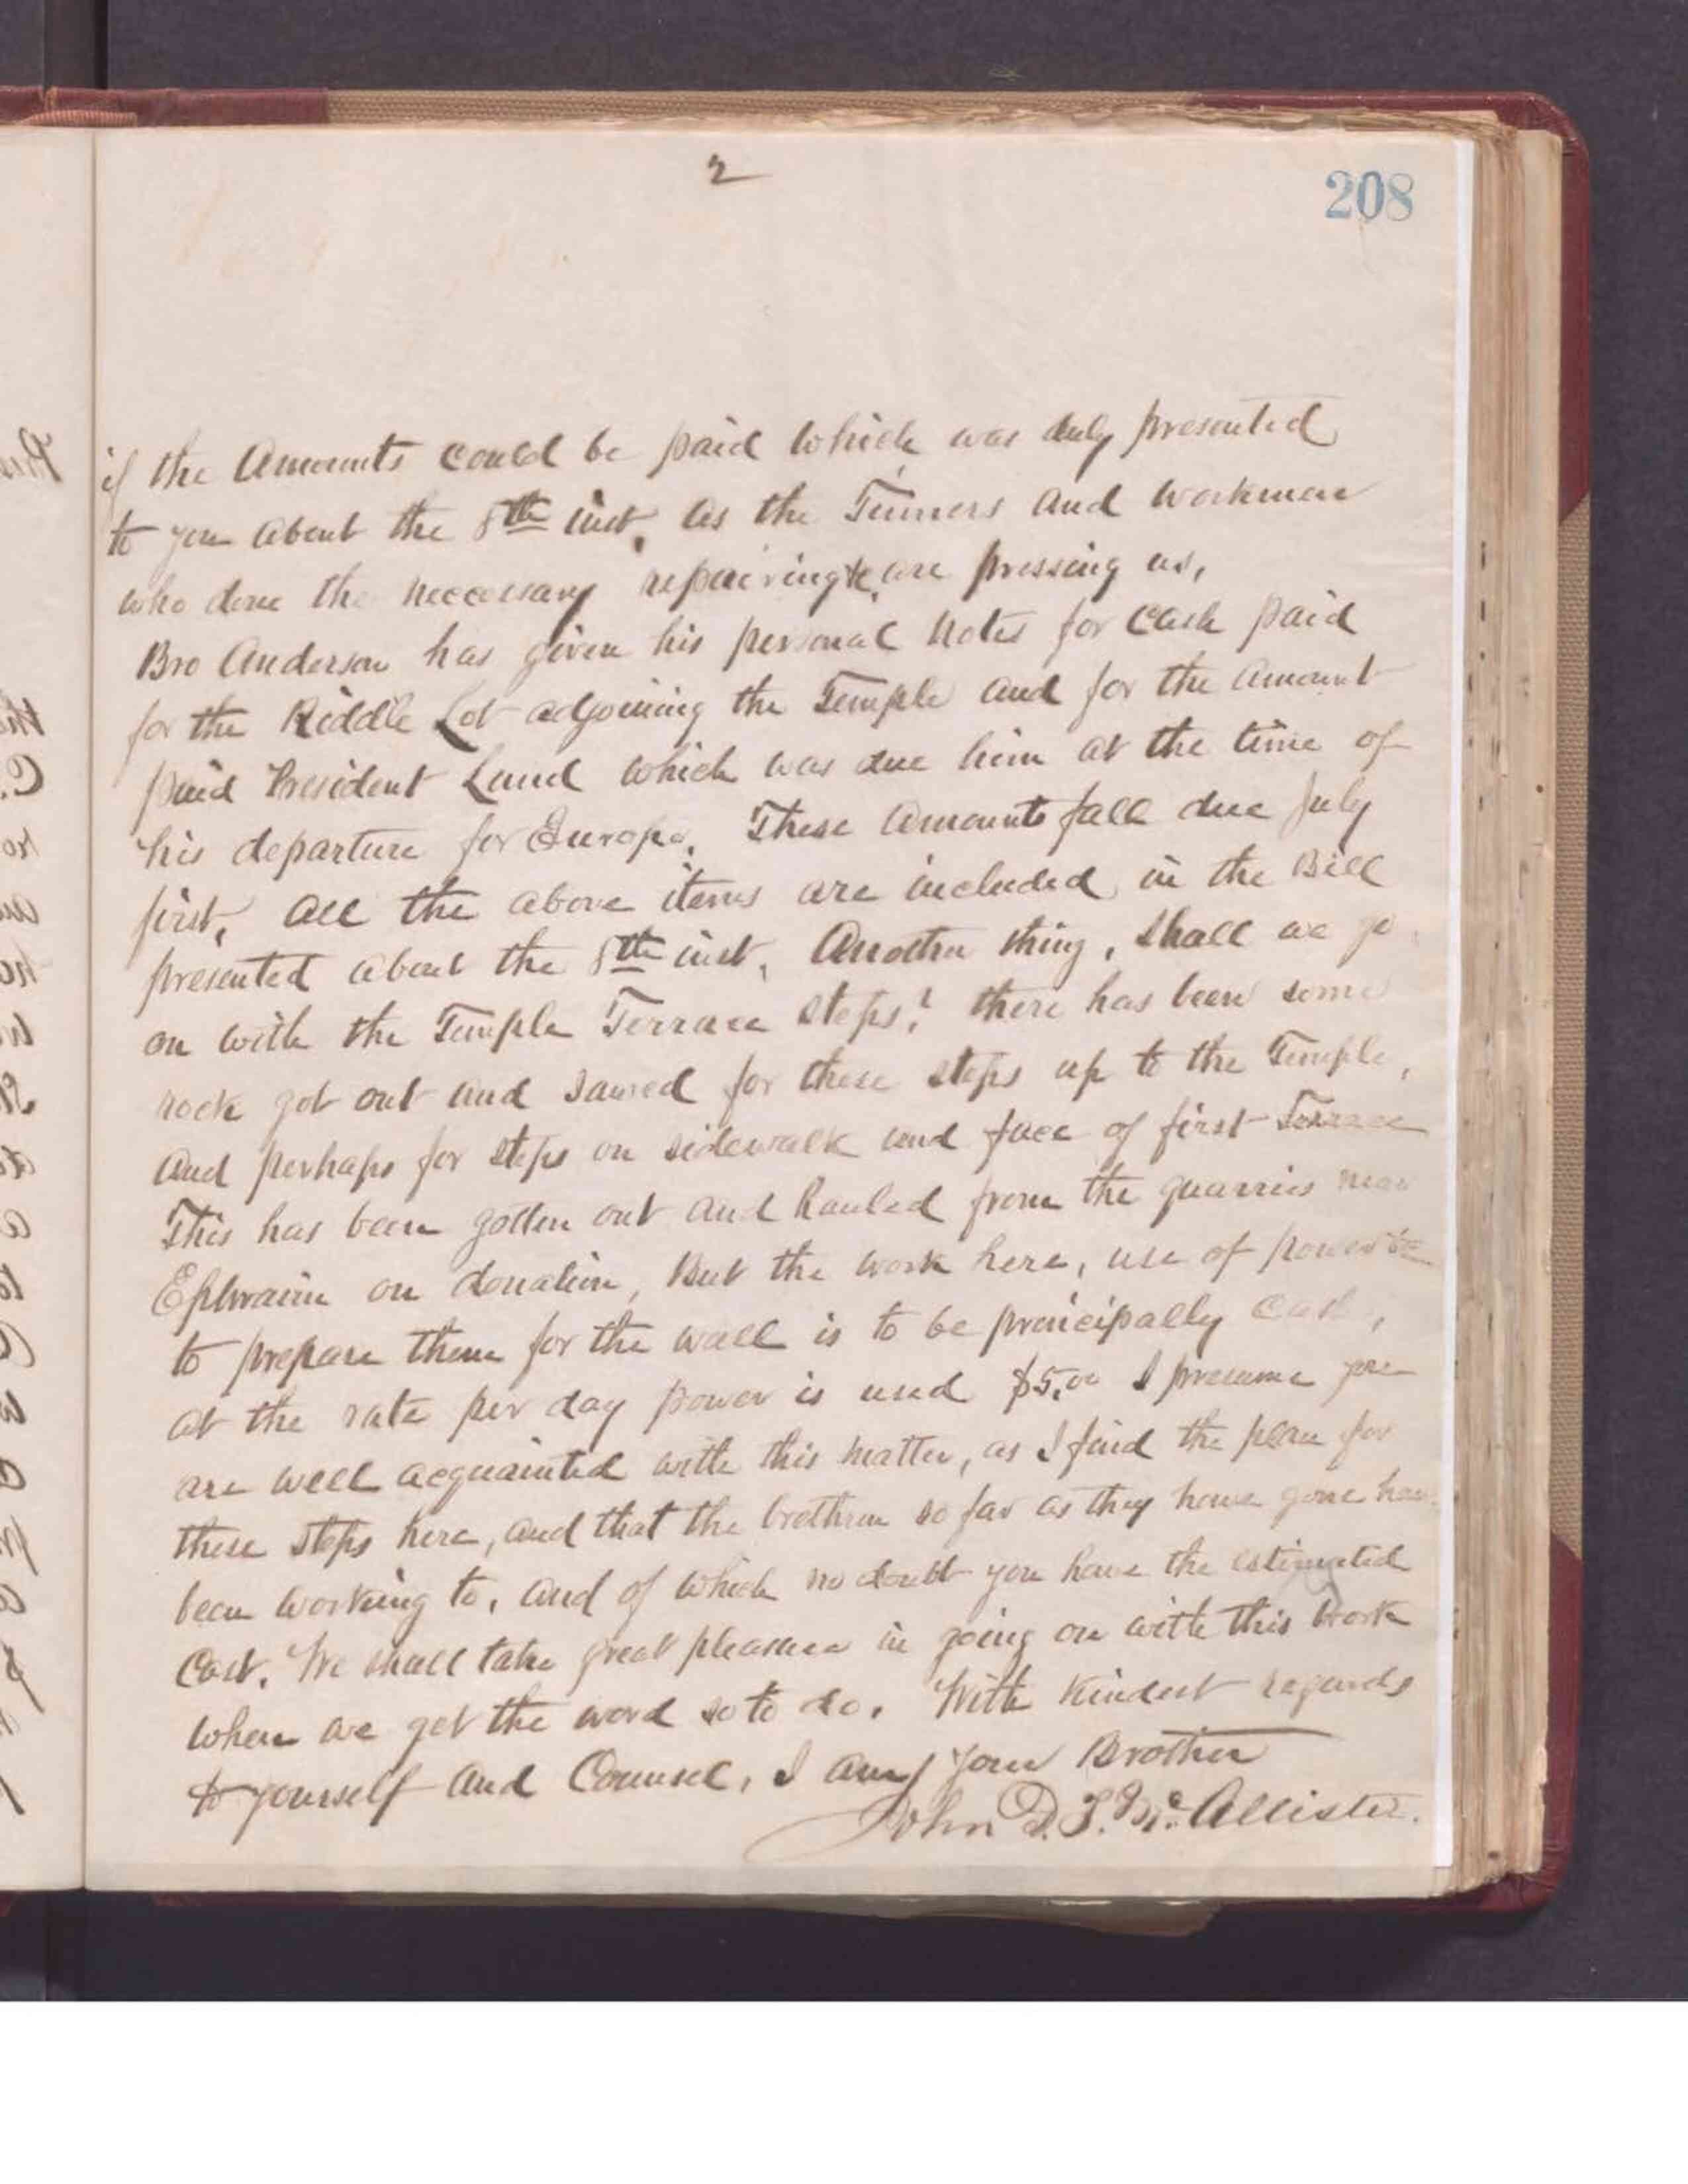 2
208
if the Amounts could be paid which was duly presented
to you about the 8th inst, as the Tinners and workmen
who done the neccessary repairing &c, are pressing us,
Bro Anderson has given his personal Notes for Cash paid
for the Riddle Lot adjoining the Temple and for the amount
paid President Lund which was due him at the time of
his departure for Europe. These Amounts fall due July
first, All the above items are included in the Bill
presented about the 8th inst, Another thing, shall we go
on with the Temple Terrace steps? there has been some
rock got out and sawed for these steps up to the Temple,
And perhaps for steps on sidewalk and face of first Terrace
This has been gotten out and hauled from the quarries near
Ephraim on donation, But the work here, use of power &c
to prepare them for the wall is to be principally cash,
at the rate per day power is used $5.00 I presume you
are well acquainted with this matter, as I find the plan for
these steps here, and that the brethren so far as they have gone have
been working to, and of which no doubt you have the estimated
Cost. We shall take great pleasure in going on with this work
when we get the word so to do. With kindest regards
to yourself and Counsel, I am your Brother
John D. T. McAllister.